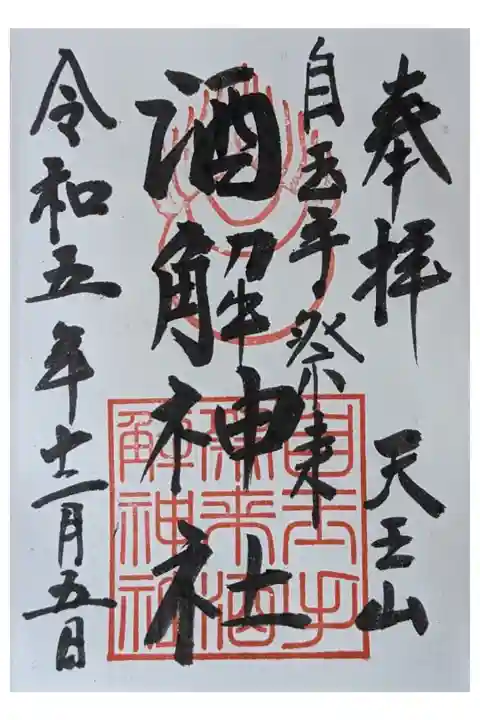 奉拝 天王山
自玉手祭来
酒解神社
令和五年十一月五日
自玉手
祭来酒
解神社